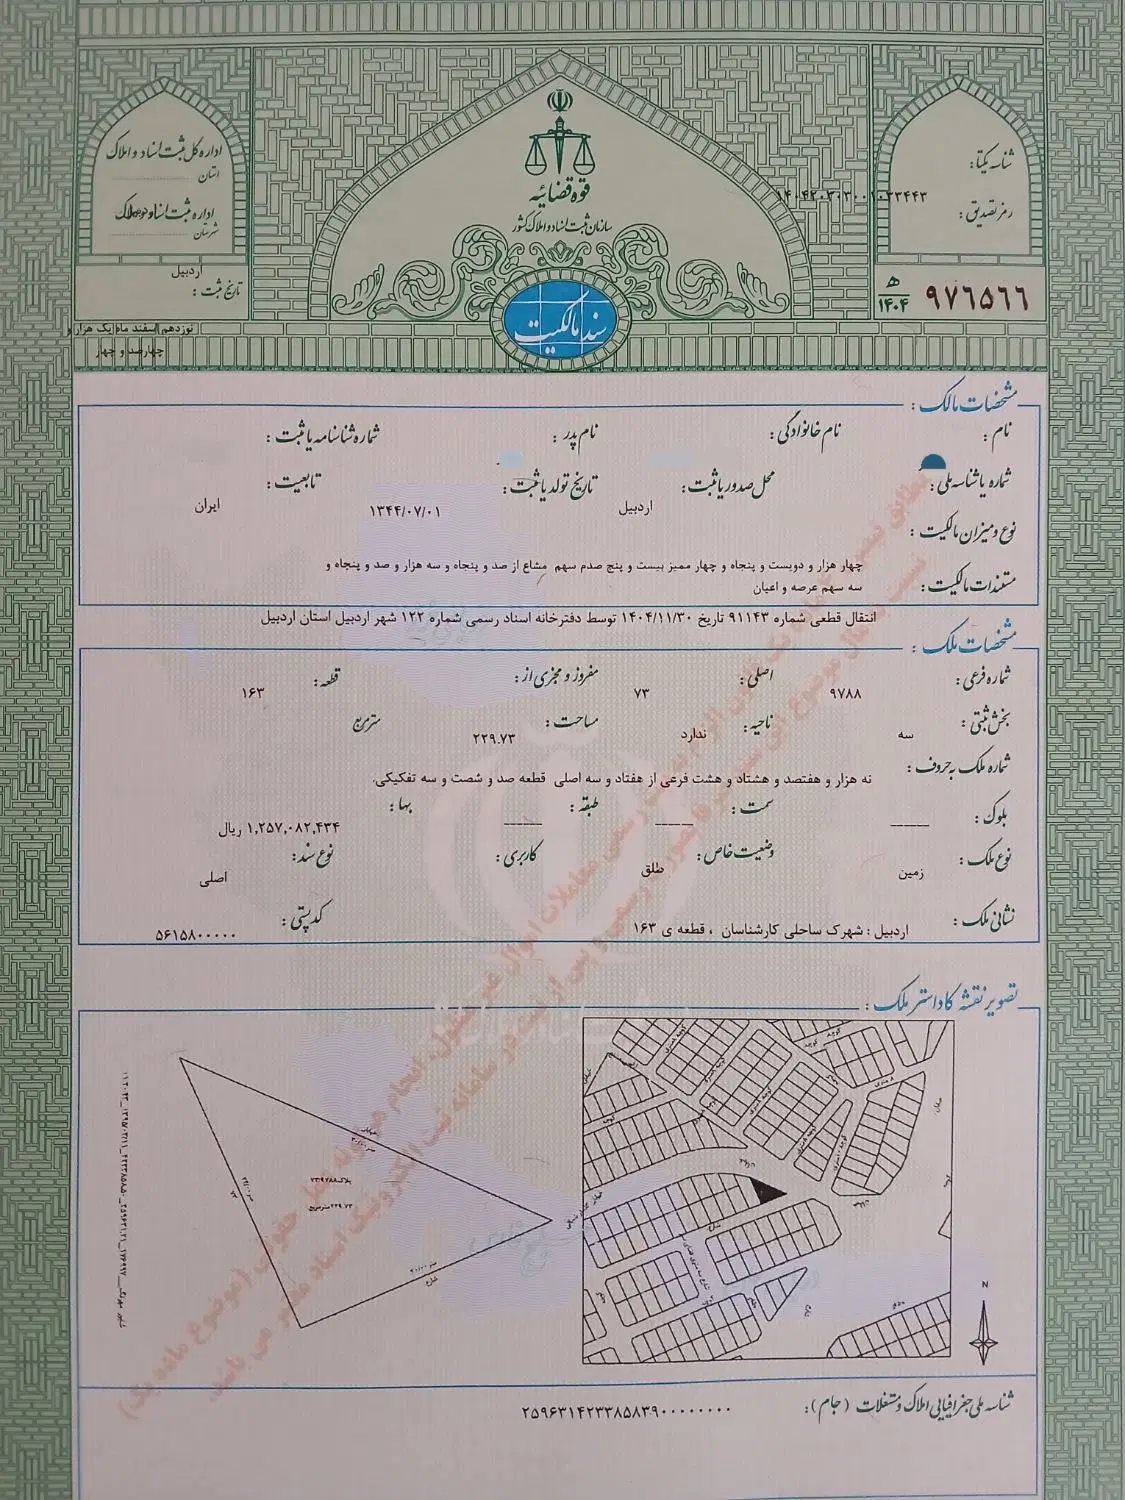 قوه قضائیه
سازمان ثبت اسناد و املاک کشور
سند مالکیت
شناسه یکتا:
۱۴۰۴۲۰۳۰۳۰۰۱۰۳۳۴۴۳
رمز تصدیق:
ه‍ ۱۴۰۴ ۹۷۶۵۶۶
اداره کل ثبت اسناد و املاک
استان
اداره ثبت اسناد و املاک
شهرستان
اردبیل
تاریخ ثبت:
نوزدهم اسفند ماه یک هزار و
چهارصد و چهار
مشخصات مالک:
نام: نام خانوادگی: نام پدر: شماره شناسنامه یا ثبت:
شماره یا شناسه ملی: محل صدور یا ثبت: اردبیل تاریخ تولد یا ثبت: ۱۳۴۴/۰۷/۰۱ تابعیت: ایران
نوع و میزان مالکیت:
چهار هزار و دویست و پنجاه و چهار ممیز بیست و پنج صدم سهم مشاع از صد و پنجاه و سه هزار و صد و پنجاه و
سه سهم عرصه و اعیان
مستندات مالکیت:
انتقال قطعی شماره ۹۱۱۴۳ تاریخ ۱۴۰۴/۱۱/۳۰ توسط دفترخانه اسناد رسمی شماره ۱۲۲ شهر اردبیل استان اردبیل
مشخصات ملک:
شماره فرعی: ۹۷۸۸ اصلی: ۷۳ مفروز و مجزی از: قطعه: ۱۶۳
بخش ثبتی: سه ناحیه: ندارد مساحت: ۲۲۹.۷۳ مترمربع
شماره ملک به حروف:
نه هزار و هفتصد و هشتاد و هشت فرعی از هفتاد و سه اصلی قطعه صد و شصت و سه تفکیکی.
بلوک: ____ سمت: ____ طبقه: ____ بها: ۱,۲۵۷,۰۸۲,۴۳۴ ریال
نوع ملک: زمین وضعیت خاص: طلق کاربری: نوع سند: اصلی
نشانی ملک: اردبیل : شهرک ساحلی کارشناسان ، قطعه ی ۱۶۳ کدپستی: ۵۶۱۵۸۰۰۰۰۰
تصویر نقشه کاداستر ملک:
پلاک ۷۳/۹۷۸۸
۲۲۹.۷۳ مترمربع
N
شناسه ملی جغرافیایی املاک و مستغلات (جام): ۲۵۹۶۳۱۴۲۳۳۸۵۸۳۹۰۰۰۰۰۰۰۰۰